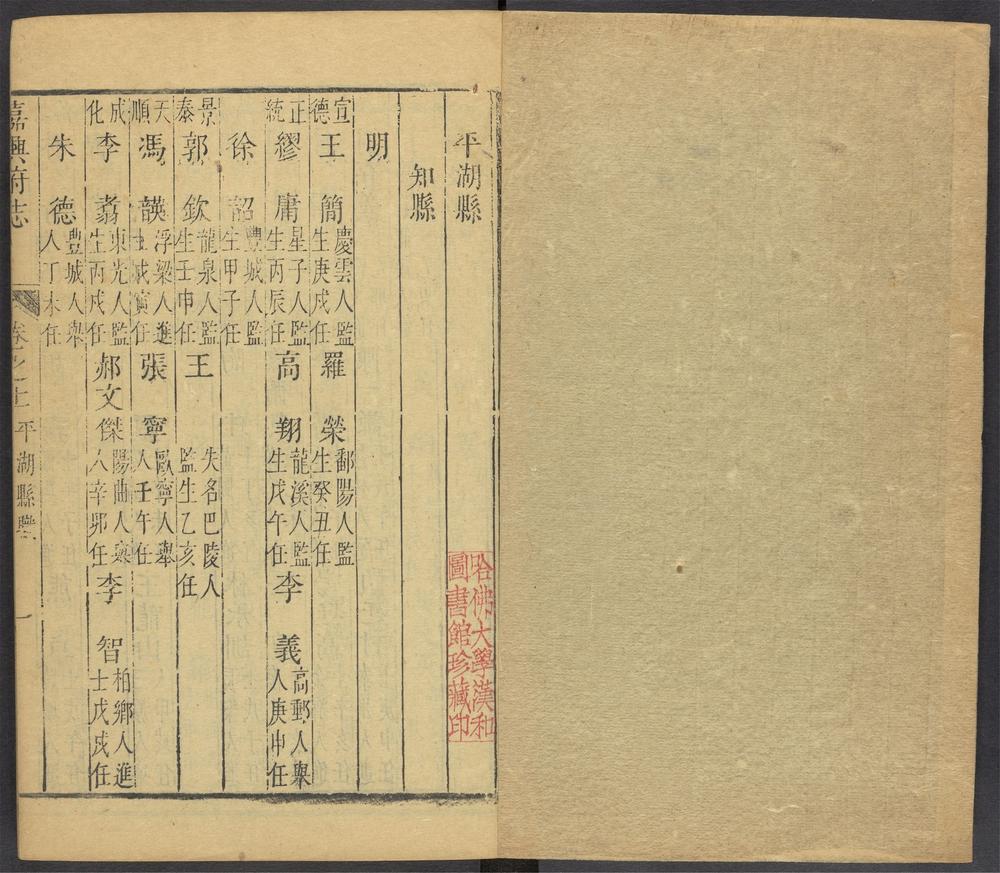 平湖縣
知縣
明
宣德 王簡 慶雲人監生庚戌任 羅榮 鄱陽人監生癸丑任
正統 繆庸 星子人監生丙辰任 高翔 龍溪人監生戊午任 李義 高郵人舉人庚申任
徐韶 豐城人監生甲子任
景泰 郭欽 龍泉人監生壬申任 王 失名巴陵人監生乙亥任
天順 馮韺 浮梁人進士戊寅任 張寧 歐寧人舉人壬午任
成化 李翥 東光人監生丙戌任 郝文傑 陽曲人舉人辛卯任 李智 柏鄉人進士戊戌任
朱德 豊城人舉人丁未任
嘉興府志 卷之十 平湖縣 一
哈佛大學漢和圖書館珍藏印